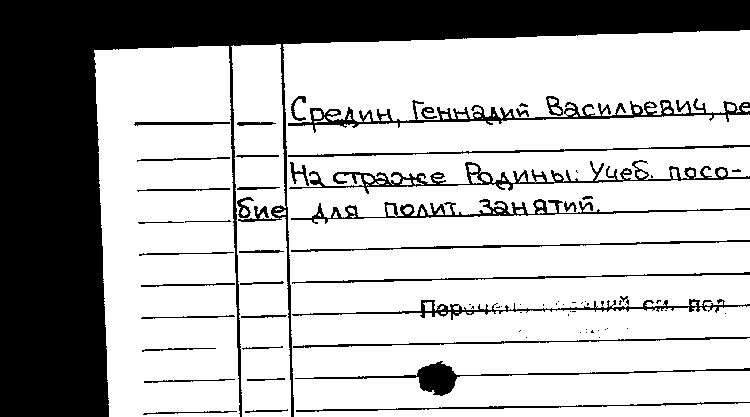 Средин, Геннадий Васильевич, ре
На страже Родины: Учеб. посо-
бие для полит. занятий.
Перечень изданий см. под